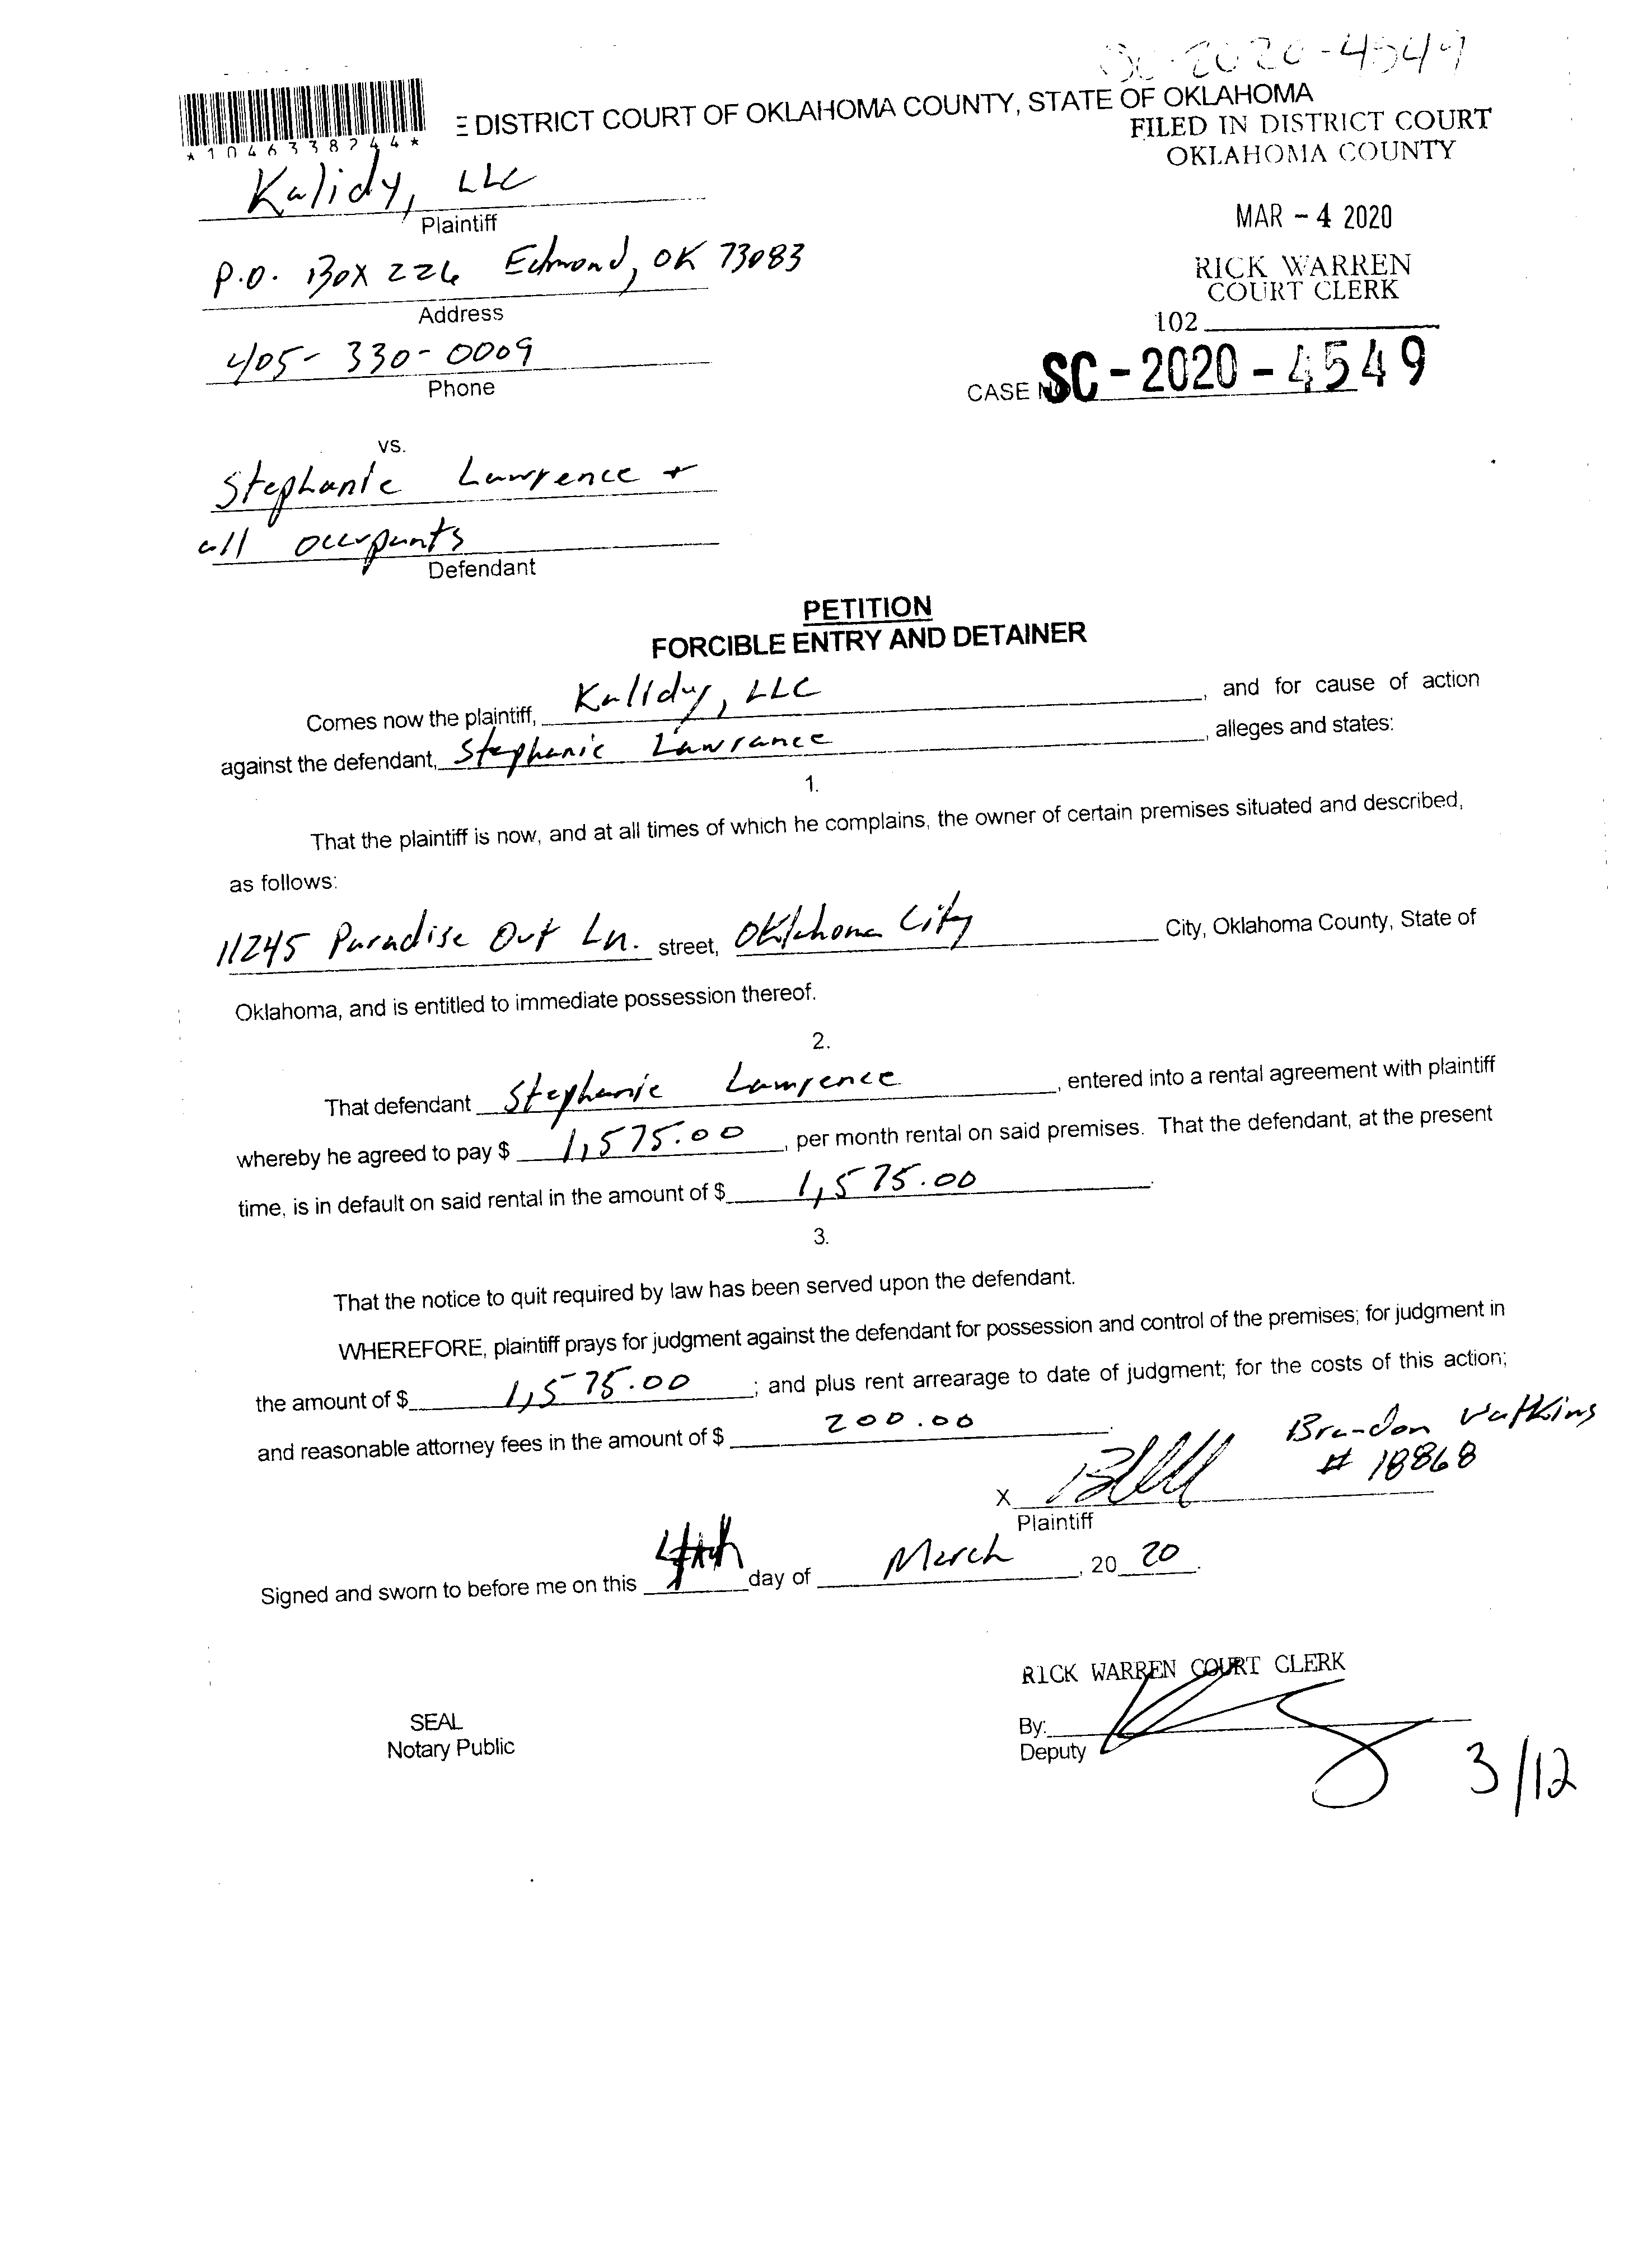 SC-2020-4549
E DISTRICT COURT OF OKLAHOMA COUNTY, STATE OF OKLAHOMA
FILED IN DISTRICT COURT
OKLAHOMA COUNTY
*1046338244*
Kalidy, LLC
Plaintiff
MAR - 4 2020
P.O. Box 226 Edmond, OK 73083
Address
RICK WARREN
COURT CLERK
102
405-330-0009
Phone
CASE NO SC-2020-4549
vs.
Stephanie Lawrence +
all occupants
Defendant
PETITION
FORCIBLE ENTRY AND DETAINER
Comes now the plaintiff, Kalidy, LLC, and for cause of action
against the defendant, Stephanie Lawrance, alleges and states:
1.
That the plaintiff is now, and at all times of which he complains, the owner of certain premises situated and described,
as follows:
11245 Paradise Out Ln. street, Oklahoma City City, Oklahoma County, State of
Oklahoma, and is entitled to immediate possession thereof.
2.
That defendant Stephanie Lawrence, entered into a rental agreement with plaintiff
whereby he agreed to pay $ 1,575.00, per month rental on said premises. That the defendant, at the present
time, is in default on said rental in the amount of $ 1,575.00.
3.
That the notice to quit required by law has been served upon the defendant.
WHEREFORE, plaintiff prays for judgment against the defendant for possession and control of the premises; for judgment in
the amount of $ 1,575.00; and plus rent arrearage to date of judgment; for the costs of this action;
and reasonable attorney fees in the amount of $ 200.00.
Brandon Watkins
# 18868
X
Plaintiff
Signed and sworn to before me on this 4th day of March, 20 20.
RICK WARREN COURT CLERK
SEAL
Notary Public
By:
Deputy
3/12